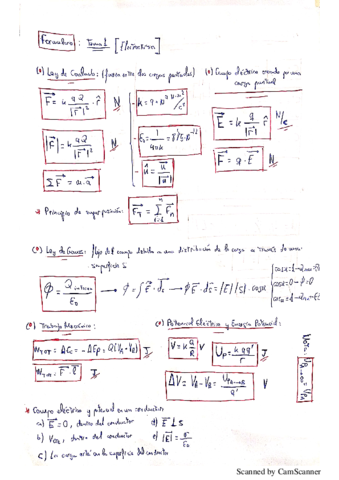 Formulario: Tema 1 [Eléctrica]
(*) Ley de Coulomb: (fuerza entre dos cargas puntuales)
F = k q Q / |r|² · r̂ N
k = 9·10⁹ N·m²/C²
|F| = k q Q / |r|² N
E₀ = 1/4πk = 8'85·10⁻¹²
ΣF = m·a
û = u/|u|
(*) Campo eléctrico creado por una carga puntual
E = k q/|r|² r̂ N/C
F = q·E N
* Principio de superposición: F_T = Σ F_n
(*) Ley de Gauss: flujo del campo debido a una distribución de la carga a través de una superficie S
Φ = Q interior / E₀ → Φ = ∫E·ds → Φ E·ds = |E||S|·cosα
(*) Trabajo Mecánico:
W_TOT = ΔEc = -ΔEp = Q(V_A - V_B) J
(*) Potencial Eléctrico y Energía Potencial:
V = k Q/R V
U_P = k q q'/r J
ΔV = V_B - V_A = V
* Campo eléctrico y potencial en un conductor
a) E = 0, dentro del conductor d) E ⊥ S
b) dentro del conductor e) |E| = σ/E₀
c) La carga está en la superficie del conductor
Scanned by CamScanner